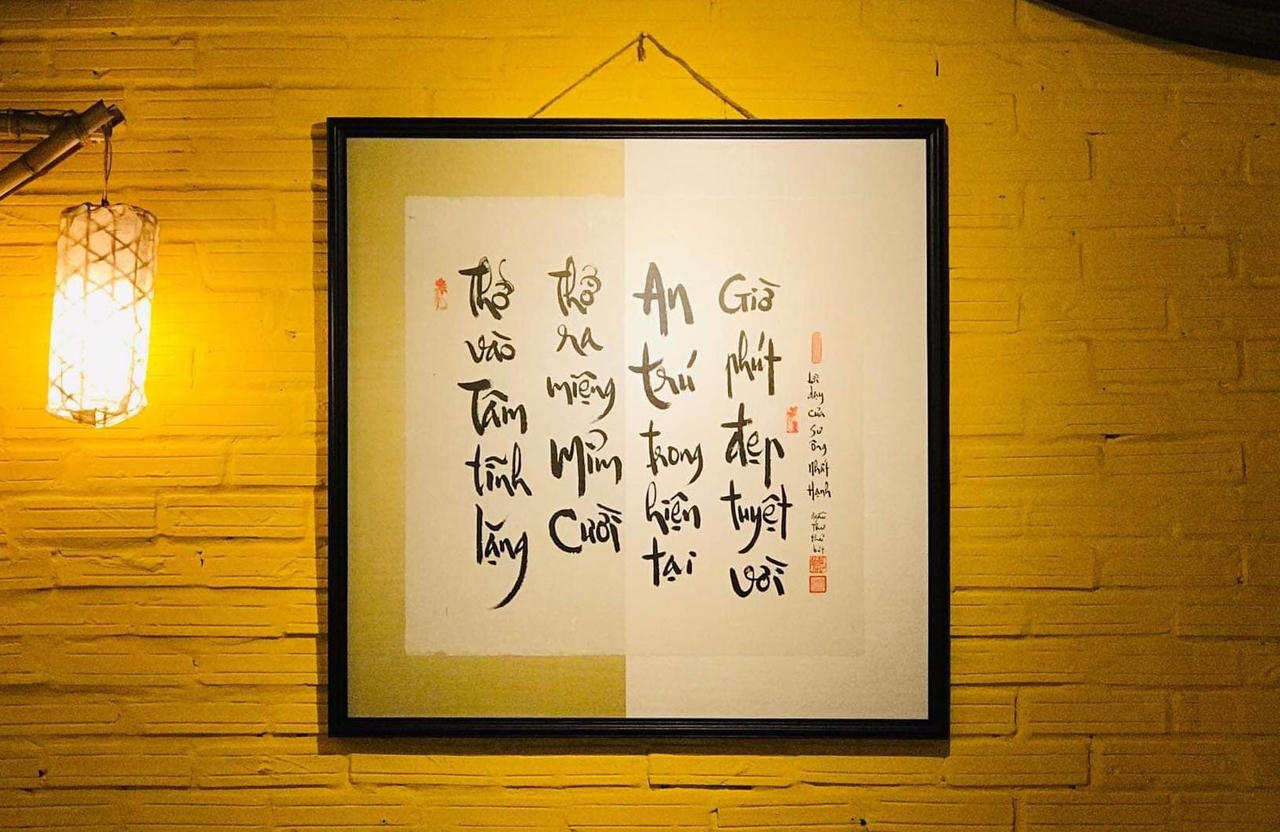 Thở vào Tâm tĩnh lặng
Thở ra miệng Mỉm Cười
An trú trong hiện tại
Giờ phút đẹp tuyệt vời
Lời dạy của Sư Ông Nhất Hạnh